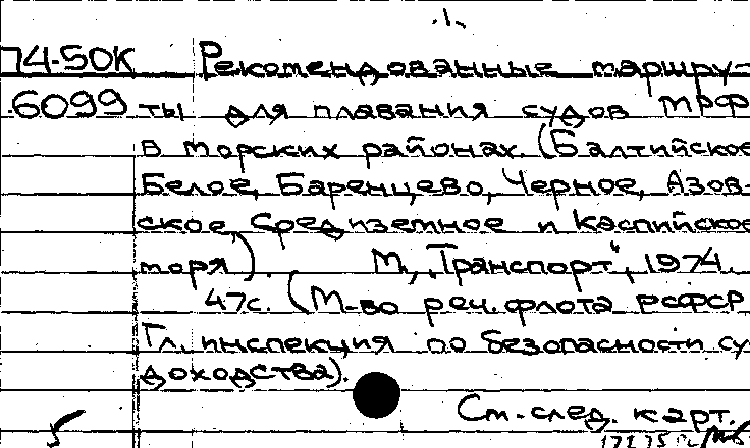 .1.
74-50К Рекомендованные маршру-
6099 ты для плавания судов МРФ
в морских районах. (Балтийское
Белое, Баренцево, Черное, Азов-
ское, Средиземное и Каспийское
моря). М., „Транспорт“, 1974.
47с. (М-во реч. флота РСФСР
Гл. инспекция по безопасности су
доходства).
5 См. след. карт.